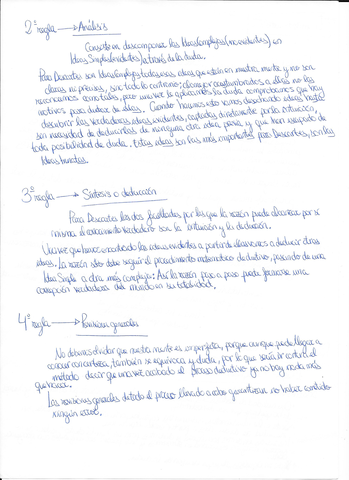 2º regla → Análisis
Consiste en descomponer las Ideas Complejas (no evidentes) en
Ideas Simples (evidentes) a través de la duda.
Para Descartes son Ideas Complejas todas esas ideas que están en nuestra mente y no son
claras ni precisas, sino todo lo contrario; al estar acostumbrados a ellas no las
reconocemos como tales, pero una vez le aplicamos la duda comprobamos que hay
motivos para dudar de ellas. Cuando hacemos esto vamos desechando ideas hasta
descubrir las verdaderas ideas evidentes, captadas directamente por la intuición,
sin necesidad de deducirlas de ninguna otra idea previa, y que han escapado de
toda posibilidad de duda. Estas ideas son las más importantes para Descartes, son las
Ideas Innatas.
3º regla → Síntesis o deducción
Para Descartes las dos facultades por las que la razón puede alcanzar por sí
misma el conocimiento verdadero son la intuición y la deducción.
Una vez que hemos encontrado las ideas evidentes a partir de ellas vamos a deducir otras
ideas. La razón sólo debe seguir el procedimiento matemático deductivo, pasando de una
Idea Simple a otra más compleja: Así la razón paso a paso puede formarse una
concepción verdadera del mundo en su totalidad.
4º regla → Revisiones generales
No debemos olvidar que nuestra mente es imperfecta, porque aunque puede llegar a
conocer con certeza, también se equivoca y duda, por lo que sería ir contra el
método decir que una vez acabado el proceso deductivo ya no hay nada más
que hacer.
Las revisiones generales de todo el proceso llevado a cabo garantizan no haber cometido
ningún error.